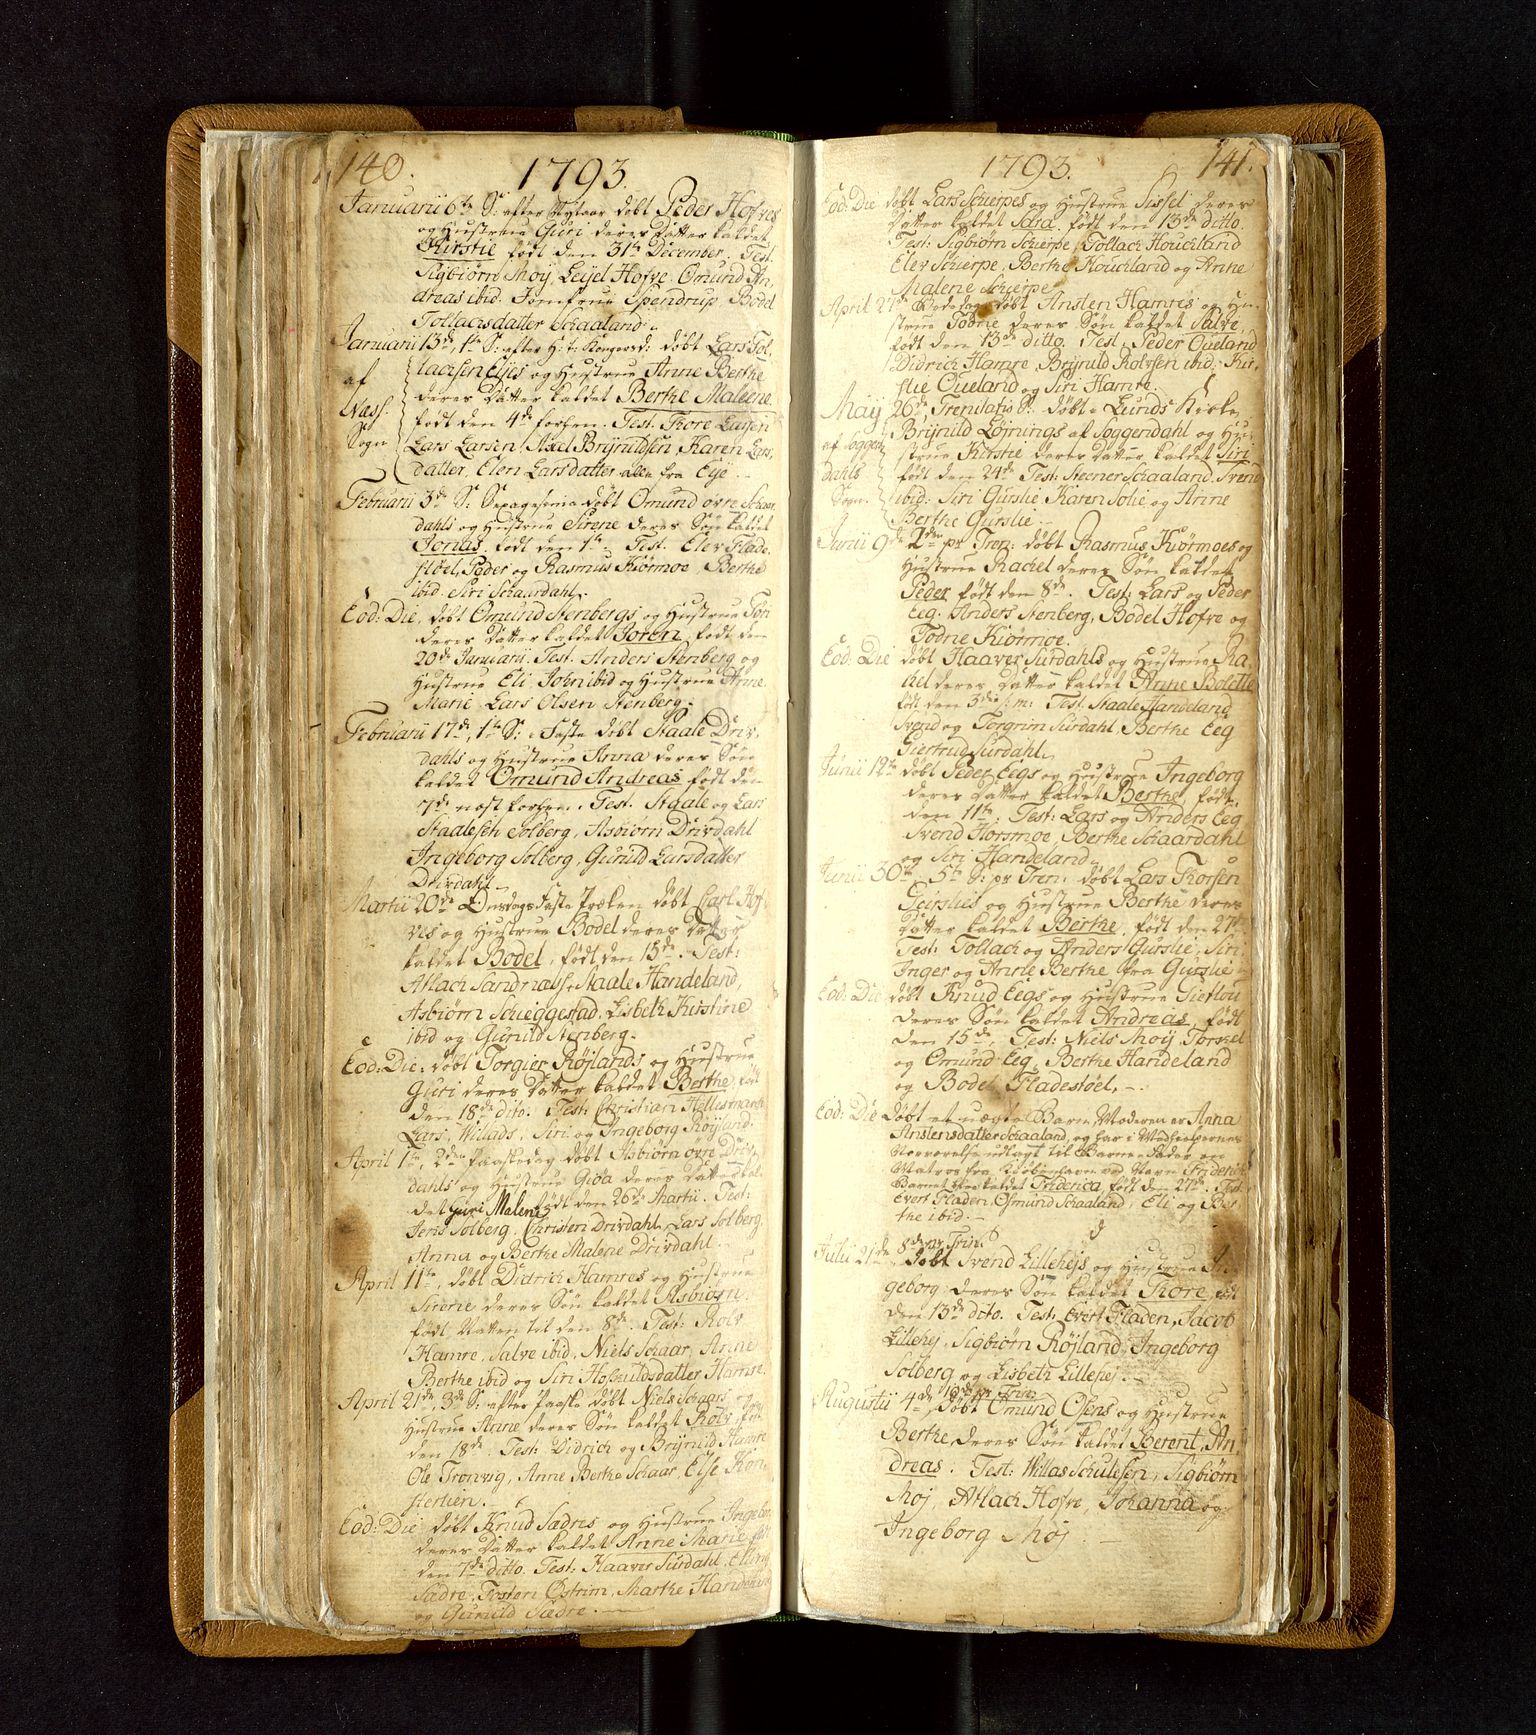 140.
1793.
Januarii 6te S: efter Nytaar døbt Peder Hofves
og Hustrue Guri deres Datter kaldet
Kirstie født den 31te December. Test.
Sigbiørn Moij, Leijel Hofve, Omund An,
dreas ibid. Jomfrue Spendrup. Bodel
Tollachsdatter Schaaland.
Januarii 13de, 1te S: efter H: t: Kongersd: døbt Lars Tol,
af
Næss.
Sogn
lachsen Eijes og Hustrue Anne Berthe
deres Datter kaldet Berthe Maleene
født den 4de forhen. Test. Thore Larsen
Lars Larsen, Axel Brijnildsen, Karen Lars,
datter, Elen Larsdatter alle fra Eije.
Februarii 3de S: Sepagesima døbt Omund øvre Schaar,
dahls og Hustrue Sirene deres Søn kaldet
Jonas. født den 1te. Test. Elev Flade,
støel, Peder og Rasmus Kiørmoe, Berthe
ibid. Siri Schaardahl.
Eod: Die, døbt Omund Stenbergs og Hustrue Tori
deres Datter kaldet Joren, født den
20de Januarii. Test. Anders Stenberg og
Hustrue Eli. John ibid og Hustrue Anne
Marie. Lars Olsen Stenberg.
Februarii 17de, 1te S: i Faste døbt Staale Driv,
dahls og Hustrue Anna deres Søn
kaldet Omund Andreas født den
7de næst forhen. Test. Staale og Lars
Staalesen Solberg, Asbiørn Drivdahl
Ingeborg Solberg, Gunild Larsdatter
Drivdahl
Martii 20de Onsdags Faste Præken døbt Carl Hof,
ves og Hustrue Bodel deres Datter
kaldet Bodel, født den 15de. Test:
Atlach Sandnals, Staale Handeland,
Asbiørn Schieggestad. Lisbeth Kirstine
ibid og Gunild Stenberg.
Eod: Die: døbt Torgier Røjlands og Hustrue
Guri deres Datter kaldet Berthe, født
den 18de dito. Test: Christian Hellesmark
Lars, Willads, Siri og Ingeborg Røijland.
April 1te, 2den Paaskedag døbt Asbiørn øvre Driv,
dahls og Hustrue Gida deres Datter kal,
det Guri Malene født den 26de Martii. Test:
Jens Solberg, Christen Drivdahl, Lars Solberg.
Anna og Berthe Malene Drivdahl.
April 11te, døbt Didrich Hamres og Hustrue
Sirene deres Søn kaldet Asbiørn.
født Natten til den 8de. Test: Rolv
Hamre, Salve ibid, Niels Schaar, Anne
Berthe ibid og Siri Hofnuldsdatter Hamre.
April 21de, 3de S: efter Paaske døbt Niels Schaars og
Hustrue Anne deres Søn kaldet Rolv, født
den 18de. Test: Didrich og Brijnild Hamre
Ole Tronvig, Anne Berthe Schaar, Else Kon,
stertien.
Eod: Die døbt Knud Sædres og Hustrue Ingebor
deres Datter kaldet Anne Marie født
den 7de ditto. Test: Haaver Surdahl, Elling
Sædre, Tosten Ostrim, Marthe Handeland
og Gunild Sædre.
1793.
141.
Eod: Die døbt Lars Schierpes og Hustrue Sissel deres
Datter kaldet Sara. født den 13de ditto.
Test: Sigbiørn Schierpe, Tollach Houchland
Elev Schierpe, Berthe Houchland og Anne
Malene Schierpe
April 27de Bededag døbt Ansten Hamres og Hu,
strue Todne deres Søn kaldet Salve,
født den 13de ditto. Test: Peder Oueland
Didrich Hamre Brijnild Rolvsen ibid: Kir,
stie Oueland og Siri Hamre.
Maij 26de, Trenitatis S: døbt i Lunds Kirke,
af Soggen,
dahls
Sogn.
Brijnild Løjnings af Soggendahl og Hu,
strue Kirstie deres Datter kaldet Siri
født den 24de Test: Steener Schaaland. Svend
ibid: Siri Gurslie Karen Solie og Anne
Berthe Gurslie.
Junii 9de 2den pr Tren: døbt Rasmus Kiørmoes og
Hustrue Rachel deres Søn kaldet
Peder født den 8de. Test: Lars og Peder
Eeg. Anders Stenberg, Bodel Hofve og
Todne Kiørmoe.
Eod: Die døbt Haaver Surdahls og Hustrue Ra,
kel deres Datter kaldet Anne Bolette
født den 3die s: m: Test. Staale Handeland
Svend og Torgrim Surdahl, Berthe Eeg
Giertrud Surdahl.
Junii 12te døbt Peder Eegs og Hustrue Ingeborg
deres Datter kaldet Berthe, født
den 11te. Test: Lars og Anders Eeg
Svend Horsmoe, Berthe Schaardahl
og Siri Handeland.
Junii 30te, 5te S: pr Tren: døbt Lars Thorsen
Goirslies og Hustrue Berthe deres
Datter kaldet Berthe. født den 27de
Test: Tollach og Anders Gurslie. Siri
Inger og Anne Berthe fra Gurslie
Eod: Die døbt Knud Eegs og Hustrue Giertou
deres Søn kaldet Andreas. født
den 15de. Test: Niels Moij Torkel
og Omund Eeg, Berthe Handeland
og Bodel Fladestøel.
Eod: Die døbt et uægte Barn, Moderen er Anna
Anstensdatter Schaaland, og har i Medhielpernes
Nærværelse udlagt til Barnefader en
Matros fra Kiøbenhavn ved Navn Friderich
Barnet blev kaldet Friderica, født den 27de. Test:
Evert Fladen, Osmund Schaaland, Eli og Ber,
the ibid.
Julii 21de 8de pr Trin:
døbt Svend Lillehejs og Hustrue In,
geborg deres Søn kaldet Thore, født
den 13de dito. Test: Evert Fladen, Jacob
Lillehej, Sigbiørn Røjland, Ingeborg
Solberg og Lisbeth Lillehej.
Augustii 4de, 10de pr Trin:
døbt Omund Osens og Hustrue
Berthe, deres Søn kaldet Berent An
dreas. Test: Willas Schulesen, Sigbiørn
Moj, Atlach Hofve, Johanna og
Ingeborg Moj